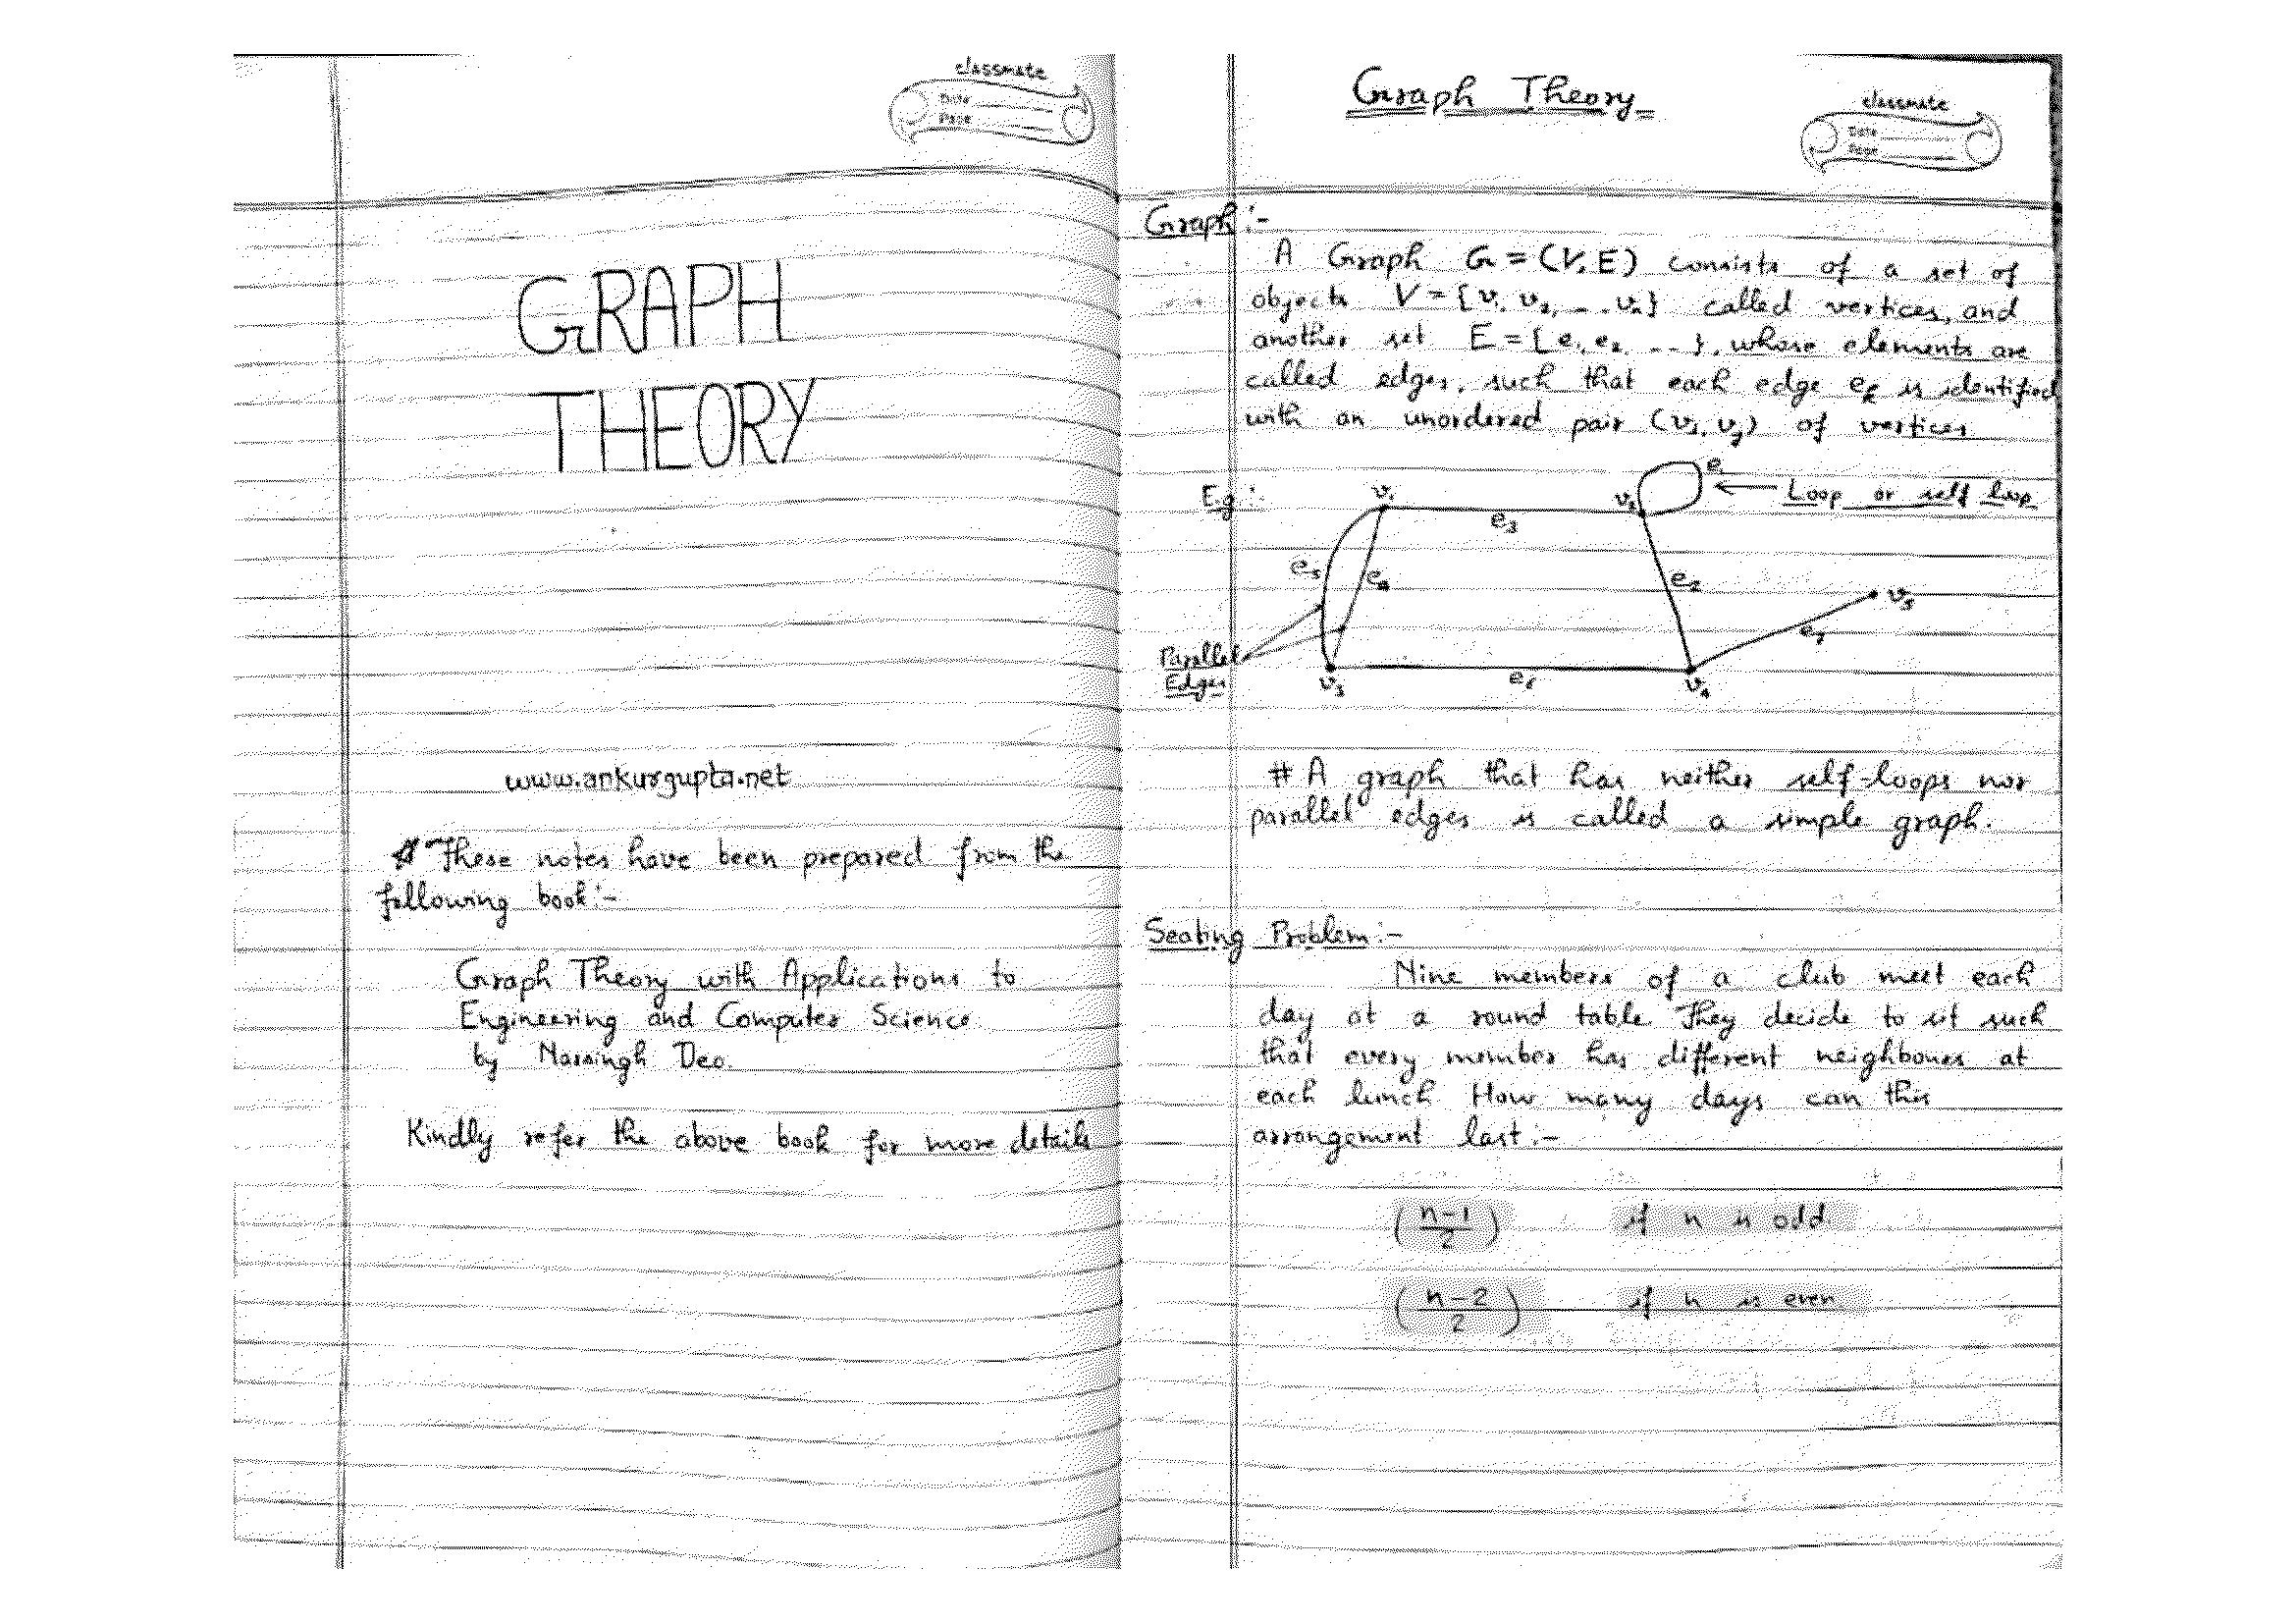 classmate
Date
Page
GRAPH
THEORY
www.ankurgupta.net
# These notes have been prepared from the
following book:-
Graph Theory with Applications to
Engineering and Computer Science
by Narsingh Deo.
Kindly refer the above book for more details
Graph Theory
classmate
Date
Page
Graph:-
A Graph G = (V, E) consists of a set of
objects V = {v₁, v₂, ... vₙ} called vertices, and
another set E = {e₁, e₂, ...}, whose elements are
called edges, such that each edge eₖ is identified
with an unordered pair (vᵢ, vⱼ) of vertices.
E.g:
v₁
e₃
v₂
e₁
Loop or self loop
e₅
e₄
e₂
v₅
e₇
Parallel
Edges
v₃
e₆
v₄
# A graph that has neither self-loops nor
parallel edges is called a simple graph.
Seating Problem:-
Nine members of a club meet each
day at a round table They decide to sit such
that every member has different neighbours at
each lunch How many days can this
arrangement last:-
(n-1/2) if n is odd
(n-2/2) if n is even